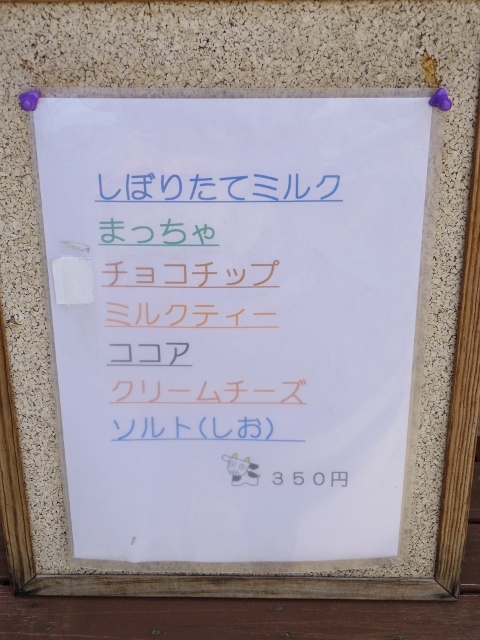 しぼりたてミルク
まっちゃ
チョコチップ
ミルクティー
ココア
クリームチーズ
ソルト(しお)
350円